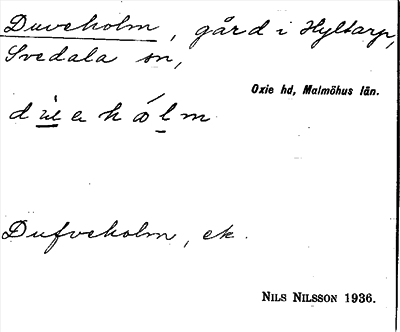 Duveholm, gård i Hyltarp,
Svedala sn,
Oxie hd, Malmöhus län.
Dufveholm, ek.
NILS NILSSON 1936.